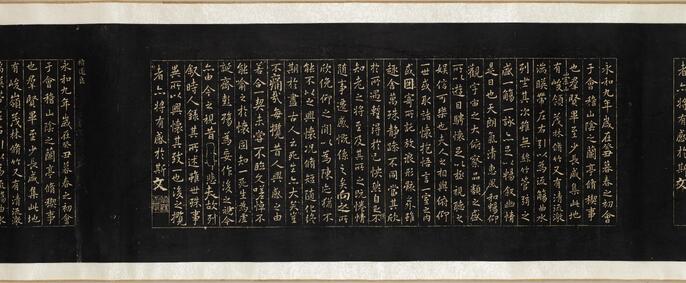 者亦將有感於斯文
永和九年歲在癸丑暮春之初會
于會稽山陰之蘭亭脩禊事
也羣賢畢至少長咸集此地
有崇山峻領茂林脩竹又有清流激
湍暎帶左右引以為流觴曲水
列坐其次雖無絲竹管弦之
盛一觴一詠亦足以暢敘幽情
是日也天朗氣清惠風和暢仰
觀宇宙之大俯察品類之盛
所以遊目騁懷足以極視聽之
娛信可樂也夫人之相與俯仰
一世或取諸懷抱悟言一室之內
或因寄所託放浪形骸之外雖
趣舍萬殊靜躁不同當其欣
於所遇暫得於己怏然自足不
知老之將至及其所之既惓情
隨事遷感慨係之矣向之所
欣俛仰之閒以為陳迹猶不
能不以之興懷況脩短隨化終
期於盡古人云死生亦大矣豈
不痛哉每攬昔人興感之由
若合一契未嘗不臨文嗟悼不
能喻之於懷固知一死生為虛
誕齊彭殤為妄作後之視今
亦由今之視昔悲夫故列
敘時人錄其所述雖世殊事
異所以興懷其致一也後之攬
者亦將有感於斯文
褚遂良
永和九年歲在癸丑暮春之初會
于會稽山陰之蘭亭脩禊事
也羣賢畢至少長咸集此地
有峻領茂林脩竹又有清流激